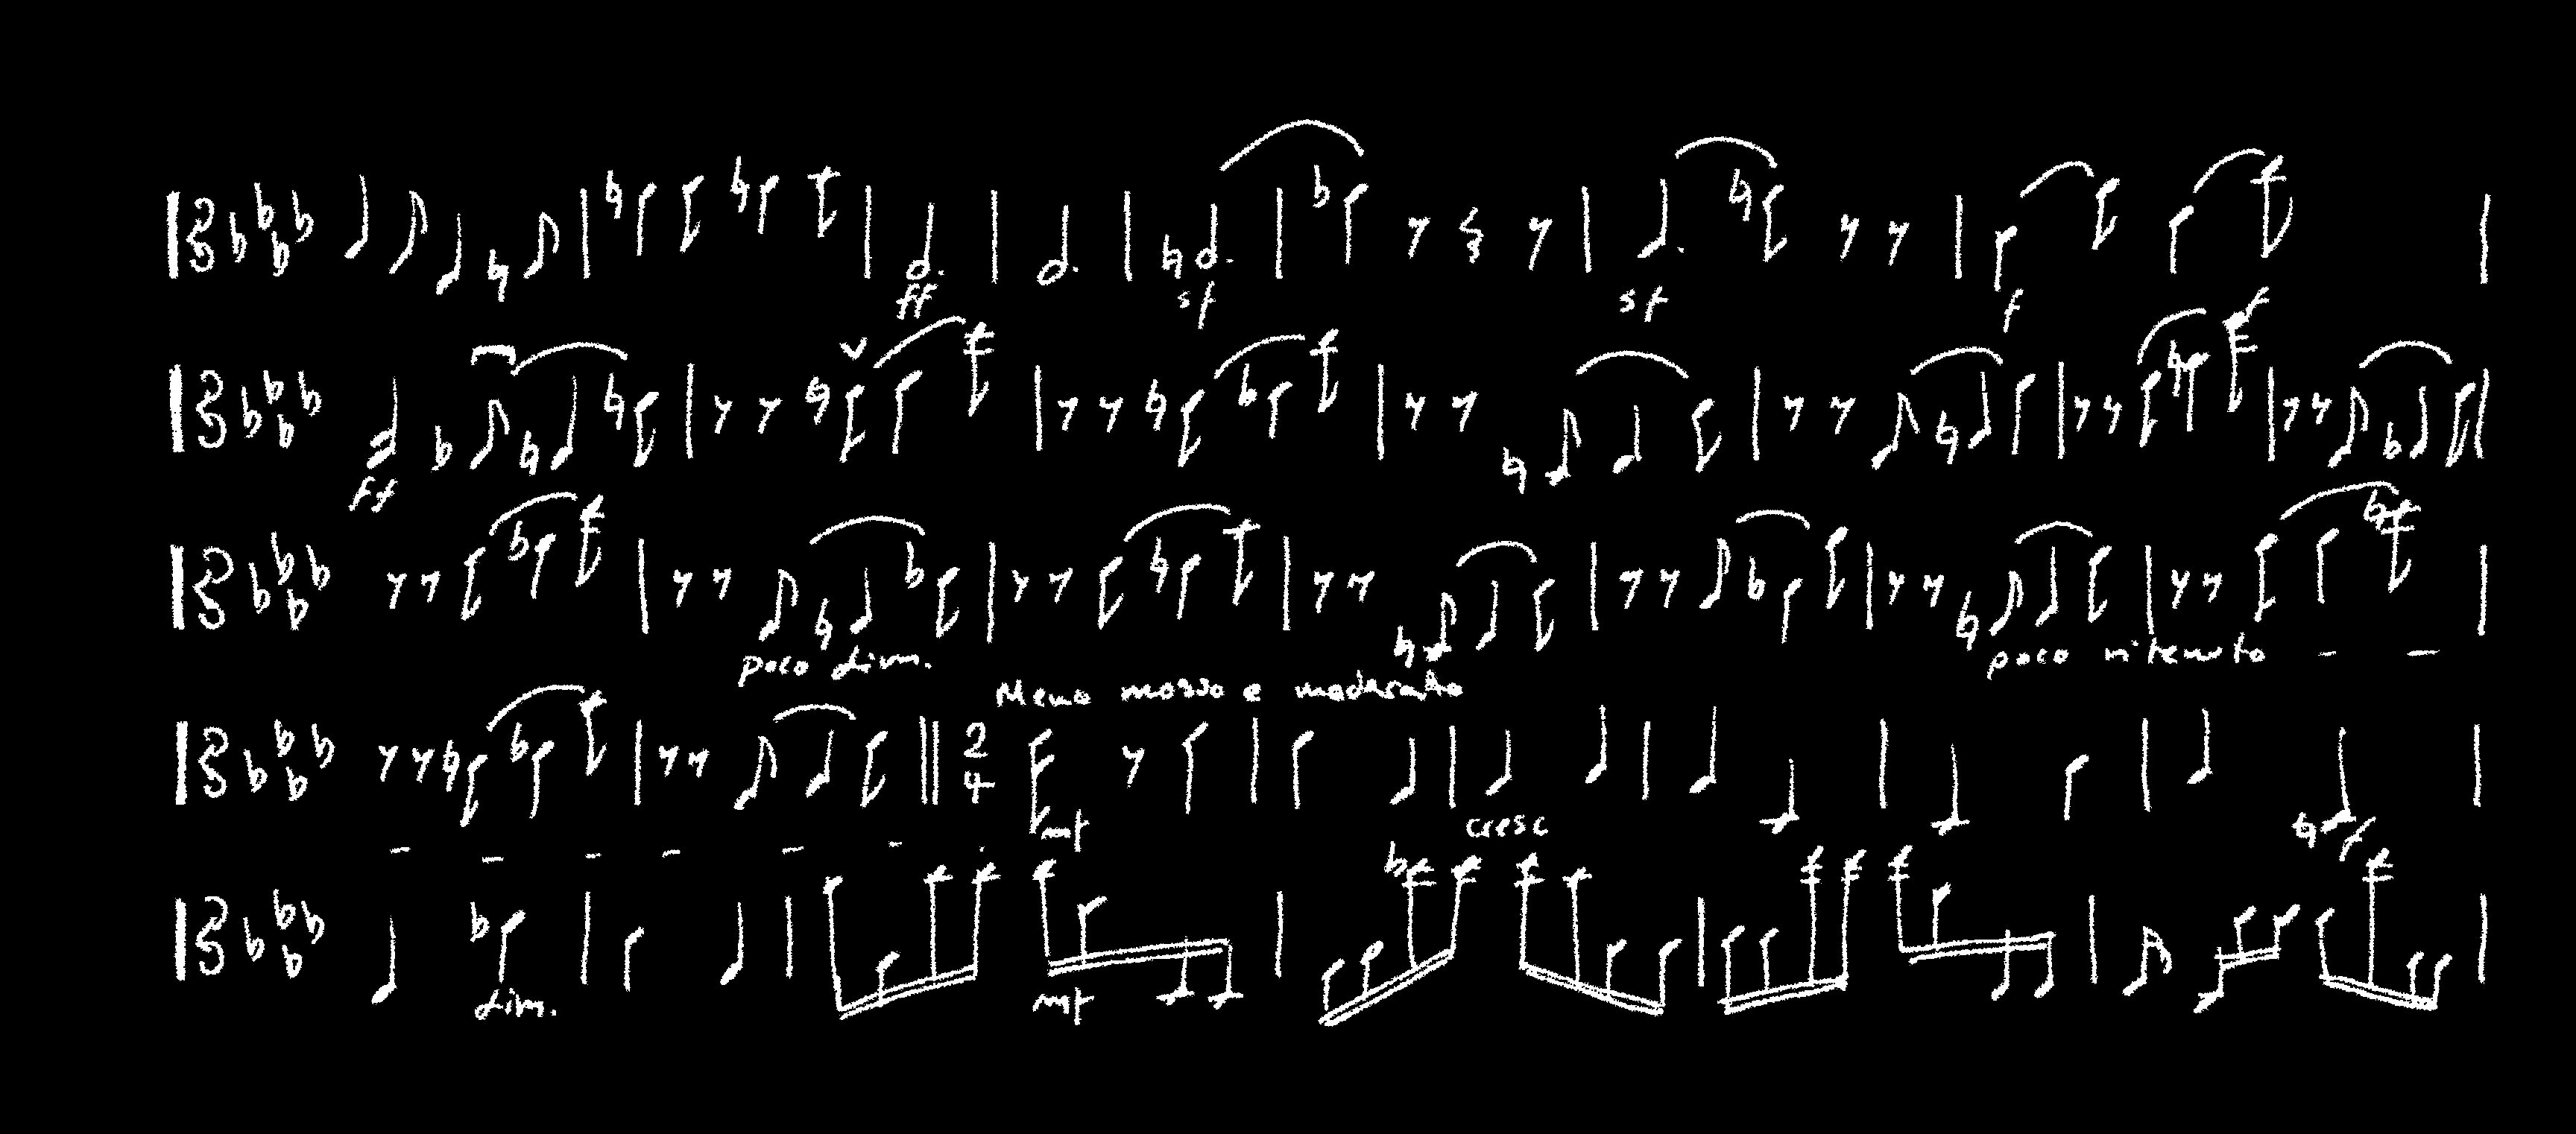 ff sf sf f
f
ff
poco dim. poco ritenuto
Meno mosso e moderato
2
4
mf cresc f
dim. mf